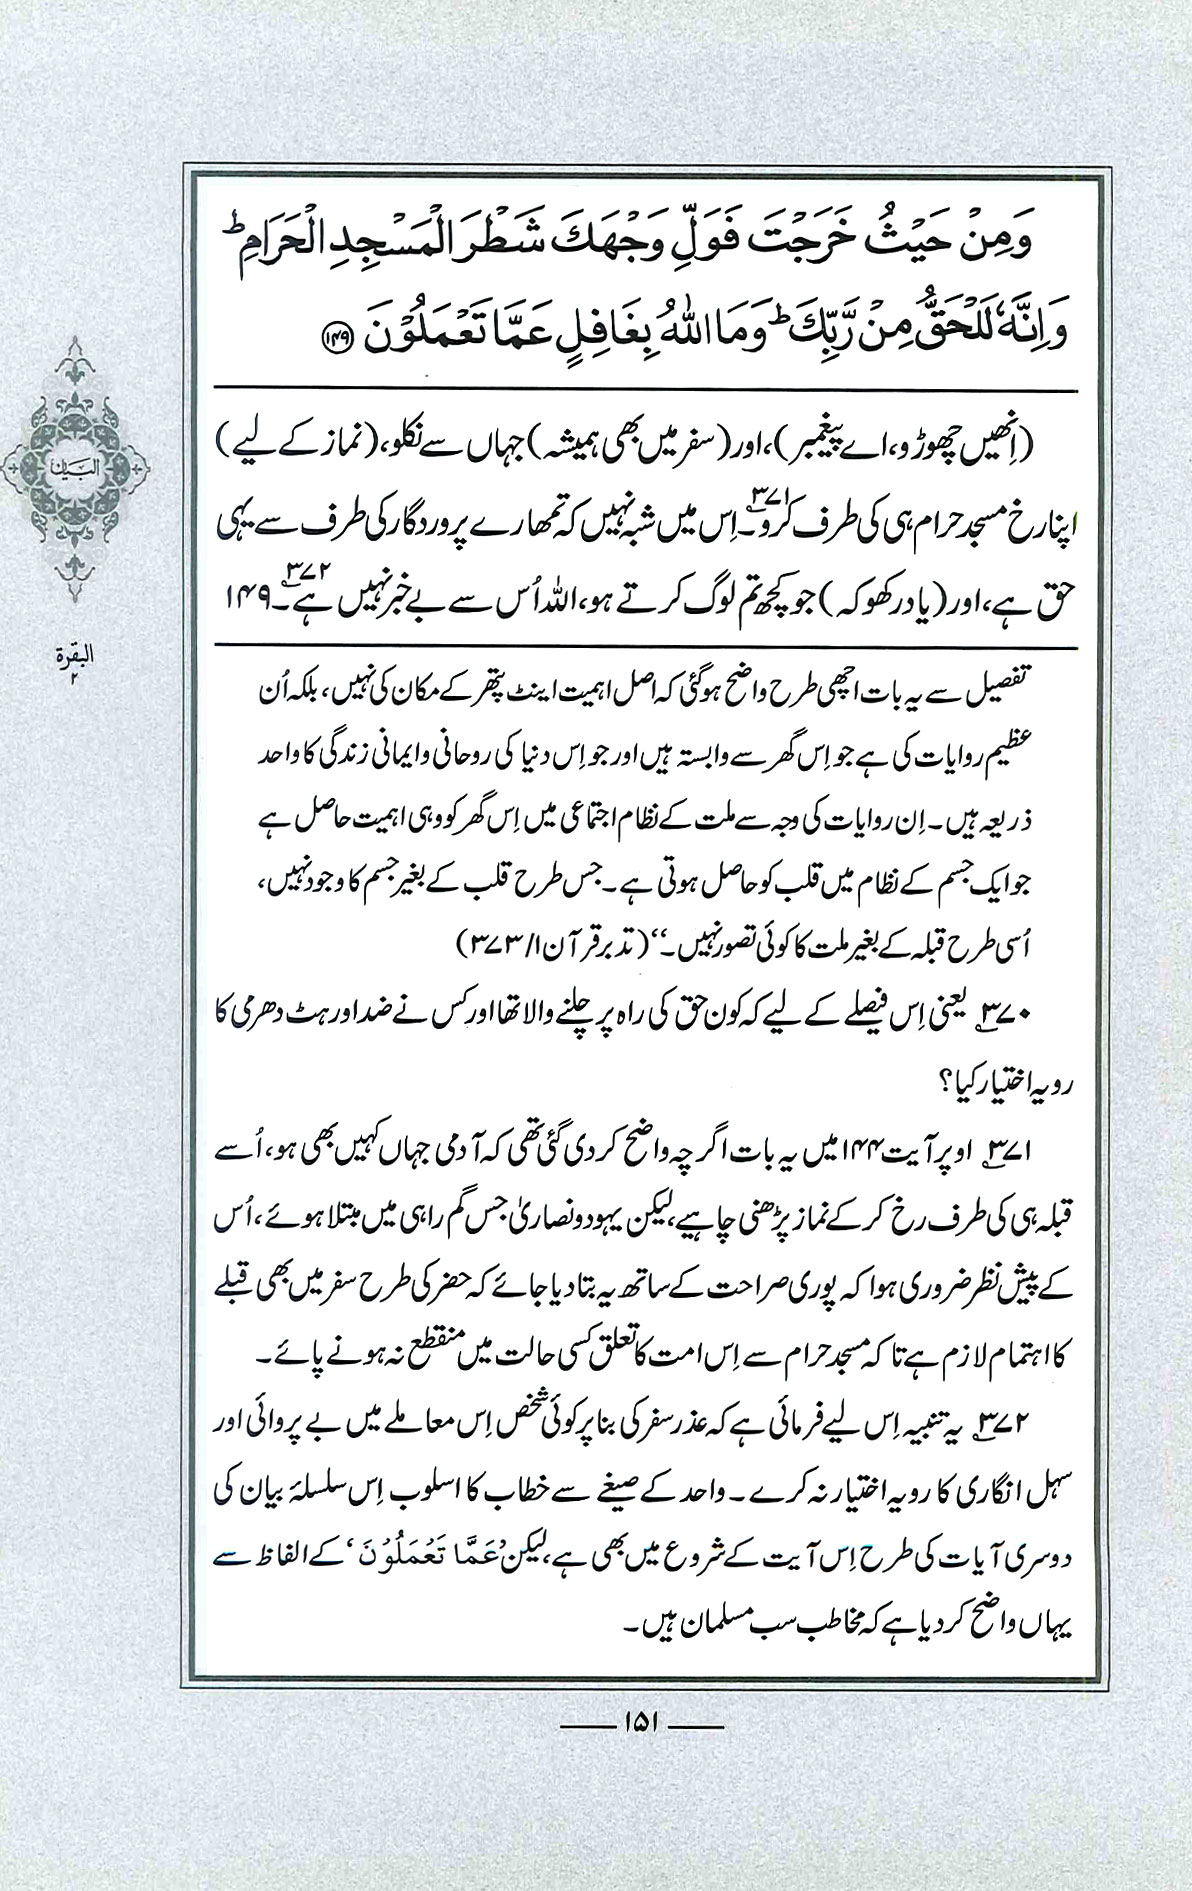 وَمِنْ حَيْثُ خَرَجْتَ فَوَلِّ وَجْهَكَ شَطْرَ الْمَسْجِدِ الْحَرَامِ ؕ
وَاِنَّهٗ لَلْحَقُّ مِنْ رَّبِّكَ ؕ وَمَا اللّٰهُ بِغَافِلٍ عَمَّا تَعْمَلُوْنَ ﴿۱۴۹﴾
(اِنھیں چھوڑو، اے پیغمبر)، اور (سفر میں بھی ہمیشہ) جہاں سے نکلو، (نماز کے لیے)
اپنا رخ مسجد حرام ہی کی طرف کرو۔۳۷۱ اِس میں شبہ نہیں کہ تمھارے پروردگار کی طرف سے یہی
حق ہے، اور (یاد رکھو کہ) جو کچھ تم لوگ کرتے ہو، اللہ اُس سے بے خبر نہیں ہے۔۳۷۲ ۱۴۹
تفصیل سے یہ بات اچھی طرح واضح ہو گئی کہ اصل اہمیت اینٹ پتھر کے مکان کی نہیں، بلکہ اُن
عظیم روایات کی ہے جو اِس گھر سے وابستہ ہیں اور جو اِس دنیا کی روحانی و ایمانی زندگی کا واحد
ذریعہ ہیں۔ اِن روایات کی وجہ سے ملت کے نظام اجتماعی میں اِس گھر کو وہی اہمیت حاصل ہے
جو ایک جسم کے نظام میں قلب کو حاصل ہوتی ہے۔ جس طرح قلب کے بغیر جسم کا وجود نہیں،
اُسی طرح قبلہ کے بغیر ملت کا کوئی تصور نہیں۔‘‘ (تدبر قرآن ۱/۳۷۳)
۳۷۰ یعنی اِس فیصلے کے لیے کہ کون حق کی راہ پر چلنے والا تھا اور کس نے ضد اور ہٹ دھرمی کا
رویہ اختیار کیا؟
۳۷۱ اوپر آیت ۱۴۴ میں یہ بات اگرچہ واضح کر دی گئی تھی کہ آدمی جہاں کہیں بھی ہو، اُسے
قبلہ ہی کی طرف رخ کر کے نماز پڑھنی چاہیے، لیکن یہود و نصاریٰ جس گم راہی میں مبتلا ہوئے، اُس
کے پیش نظر ضروری ہوا کہ پوری صراحت کے ساتھ یہ بتا دیا جائے کہ حضر کی طرح سفر میں بھی قبلے
کا اہتمام لازم ہے تاکہ مسجد حرام سے اِس امت کا تعلق کسی حالت میں منقطع نہ ہونے پائے۔
۳۷۲ یہ تنبیہ اِس لیے فرمائی ہے کہ عذر سفر کی بنا پر کوئی شخص اِس معاملے میں بے پروائی اور
سہل انگاری کا رویہ اختیار نہ کرے۔ واحد کے صیغے سے خطاب کا اسلوب اِس سلسلۂ بیان کی
دوسری آیات کی طرح اِس آیت کے شروع میں بھی ہے، لیکن ’عَمَّا تَعْمَلُوْنَ‘ کے الفاظ سے
یہاں واضح کر دیا ہے کہ مخاطب سب مسلمان ہیں۔
البیان
البقرة
۲
۱۵۱